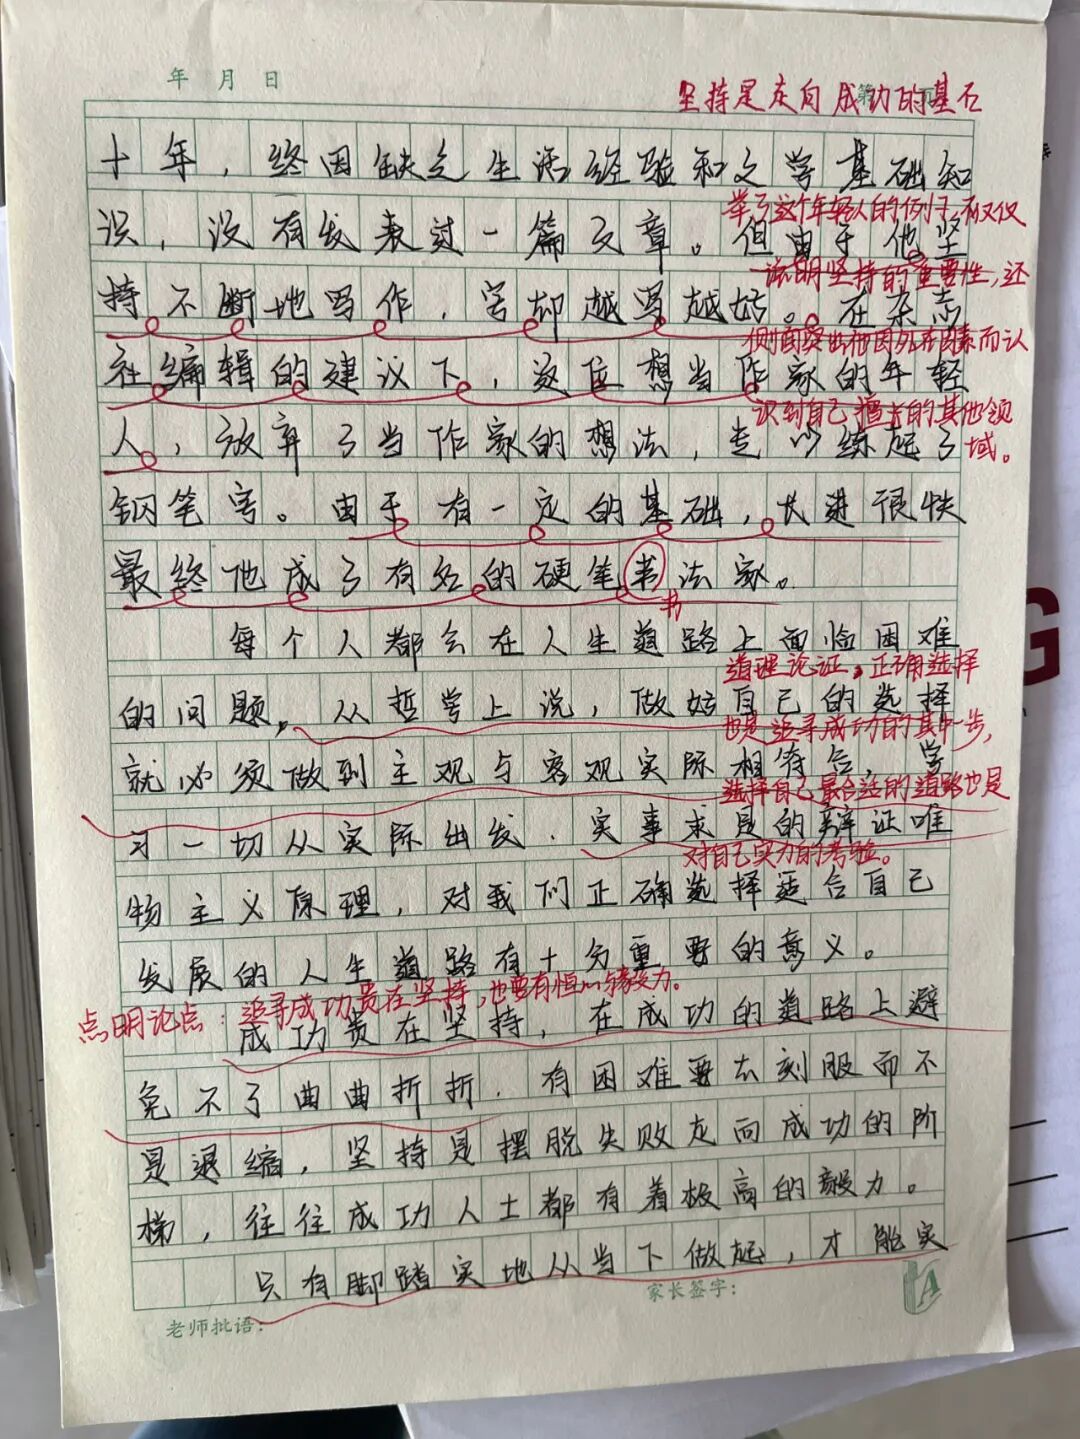 年 月 日
坚持是走向成功的基石
十年，终因缺乏生活经验和文学基础知
举了这个年轻人的例子，不仅仅
识，没有发表过一篇文章。但由于他坚
说明坚持的重要性，还
持不断地写作，字却越写越好。在杂志
侧面突出他因外在因素而认
社编辑的建议下，这位想当作家的年轻
识到自己擅长的其他领
人，放弃了当作家的想法，走练起了
域。
钢笔字。由于有一定的基础，长进很快
最终他成了有名的硬笔书法家。
书
每个人都会在人生道路上面临困难
道理论证，正确选择
的问题，从哲学上说，做好自己的选择
也是追寻成功的其中一步，
就必须做到主观与客观实际相符合，学
选择自己最合适的道路也是
习一切从实际出发，实事求是的辩证唯
对自己实力的考验。
物主义原理，对我们正确选择适合自己
发展的人生道路有十分重要的意义。
点明论点：追寻成功贵在坚持，也要有恒心与毅力。
成功贵在坚持，在成功的道路上避
免不了曲曲折折，有困难要去刻服而不
是退缩，坚持是摆脱失败走向成功的阶
梯，往往成功人士都有着极高的毅力。
只有脚踏实地从当下做起，才能实
家长签字：
老师批语：